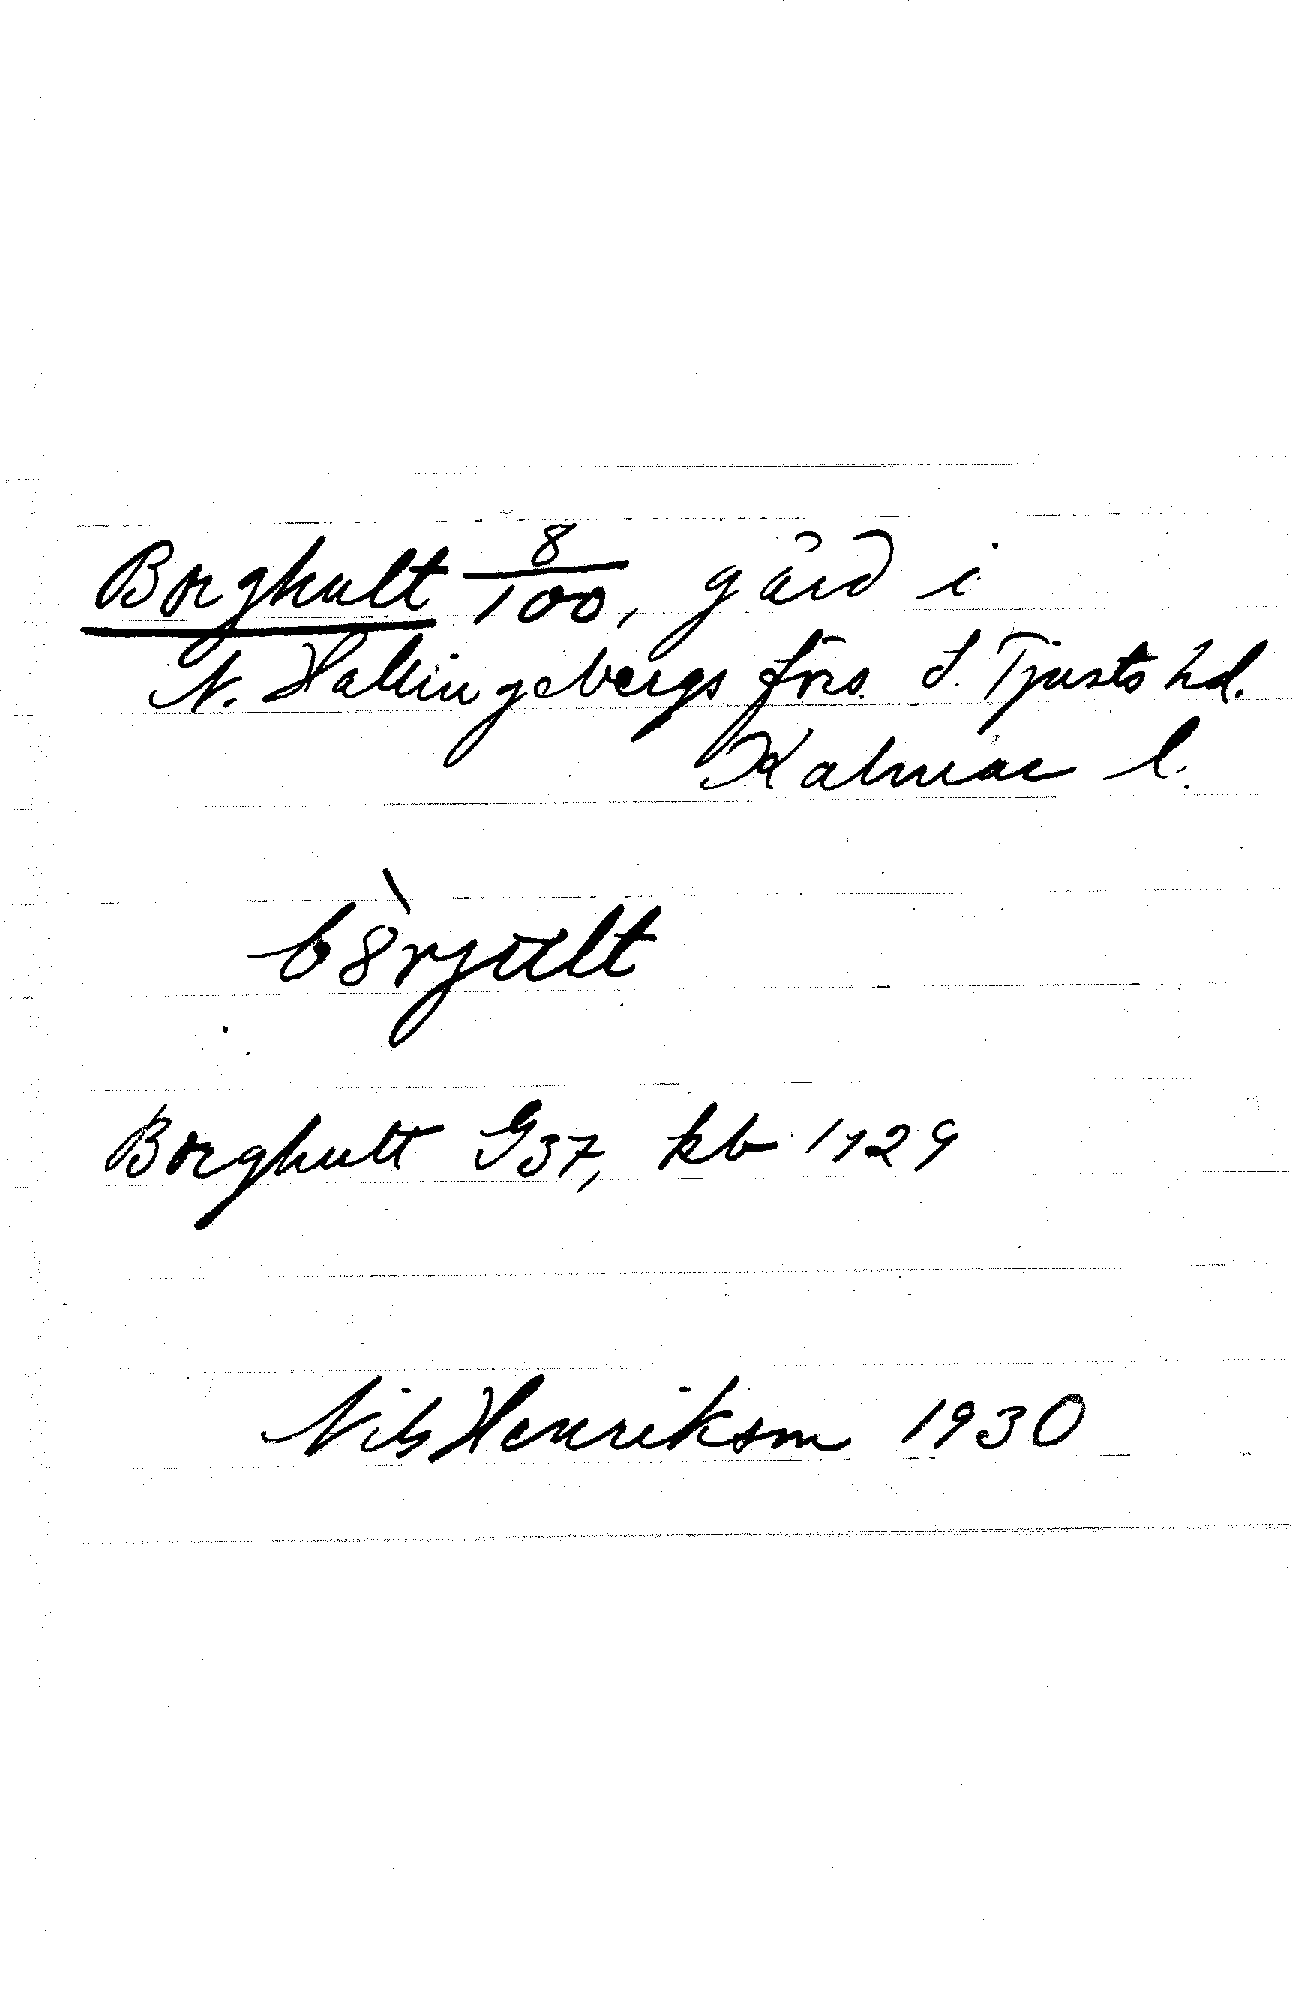 Borghult 8/100, gård i
N. Hallingebergs förs. S. Tjusts hd.
Kalmar l.
bȣ̀rjult
Borghult G37, kb 1729
Nils Henrikson 1930